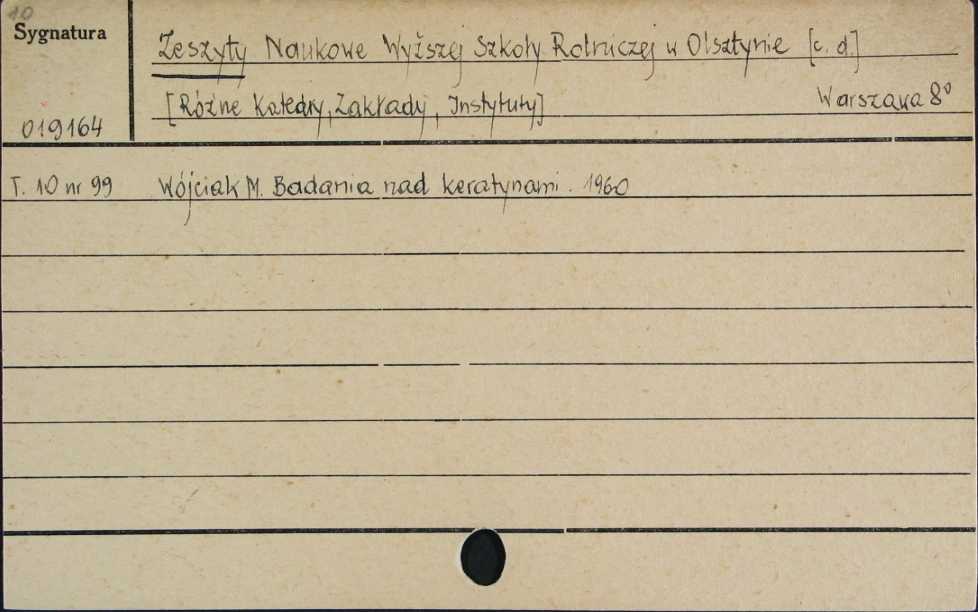 10
Sygnatura
Zeszyty Naukowe Wyższej Szkoły Rolniczej w Olsztynie [c. d.]
[Różne Katedry, Zakłady, Instytuty] Warszawa 8°
019164
T. 10 nr 99 Wójciak M. Badania nad keratynami. 1960